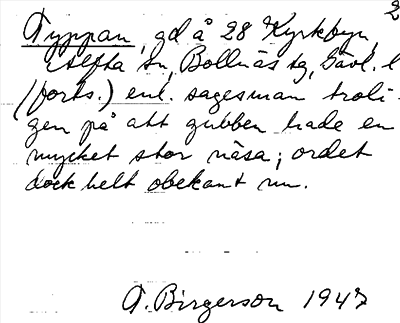 2
Typpan, gd å 28 Kyrkbyn,
Alfta sn, Bollnäs tg, Gävl. l
(forts.) enl. sagesman troli-
gen på att gubben hade en
mycket stor näsa; ordet
dock helt obekant nu.
A. Birgerson 1947